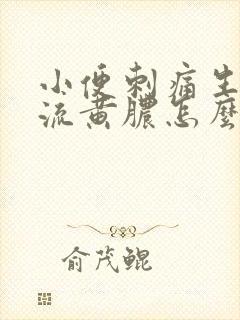 小便刺痛生
流黄膿怎麼
俞茂鲲